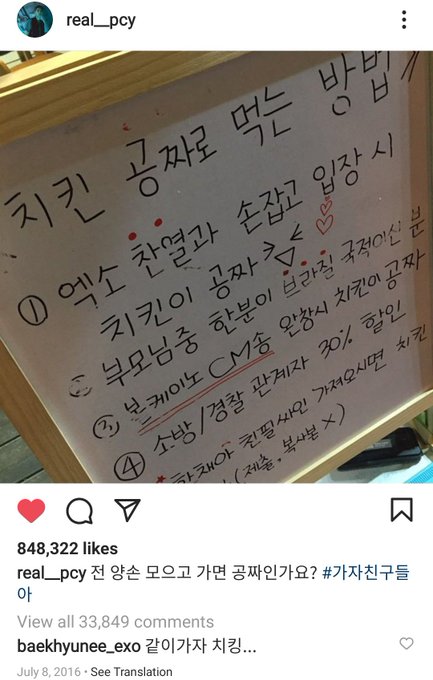 real__pcy
치킨 공짜로 먹는 방법
① 엑소 찬열과 손잡고 입장 시
치킨이 공짜
② 부모님중 한분이 브라질 국적이신 분
③ 본케이노 CM송 완창시 치킨이 공짜
④ 소방/경찰 관계자 30% 할인
친필싸인 가져오시면 치킨
(제출, 복사본 X)
848,322 likes
real__pcy 전 양손 모으고 가면 공짜인가요? #가자친구들
아
View all 33,849 comments
baekhyunee_exo 같이가자 치킹...
July 8, 2016 • See Translation